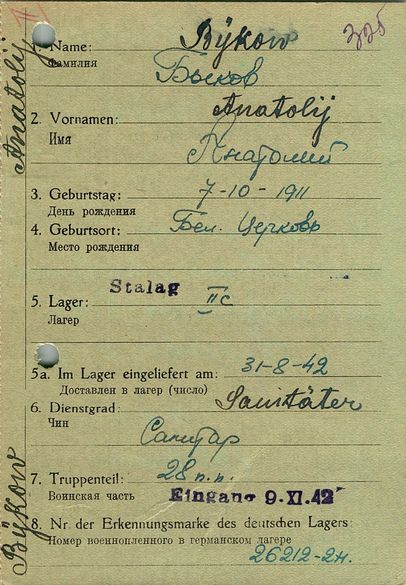 335
1. Name: Býkow
Фамилия Быков
2. Vornamen: Anatolij
Имя Анатолий
3. Geburtstag: 7-10-1911
День рождения
4. Geburtsort: Бел. Церковь
Место рождения
5. Lager: Stalag IIc
Лагер
5a. Im Lager eingeliefert am: 31-8-42
Доставлен в лагер (число)
6. Dienstgrad: Sanitäter
Чин Санитар
7. Truppenteil: 28 п.п.
Воинская часть Eingang 9. XI. 42
8. Nr. der Erkennungsmarke des deutschen Lagers:
Номер военнопленного в германском лагере
26212-2H.
Býkow Anatolij